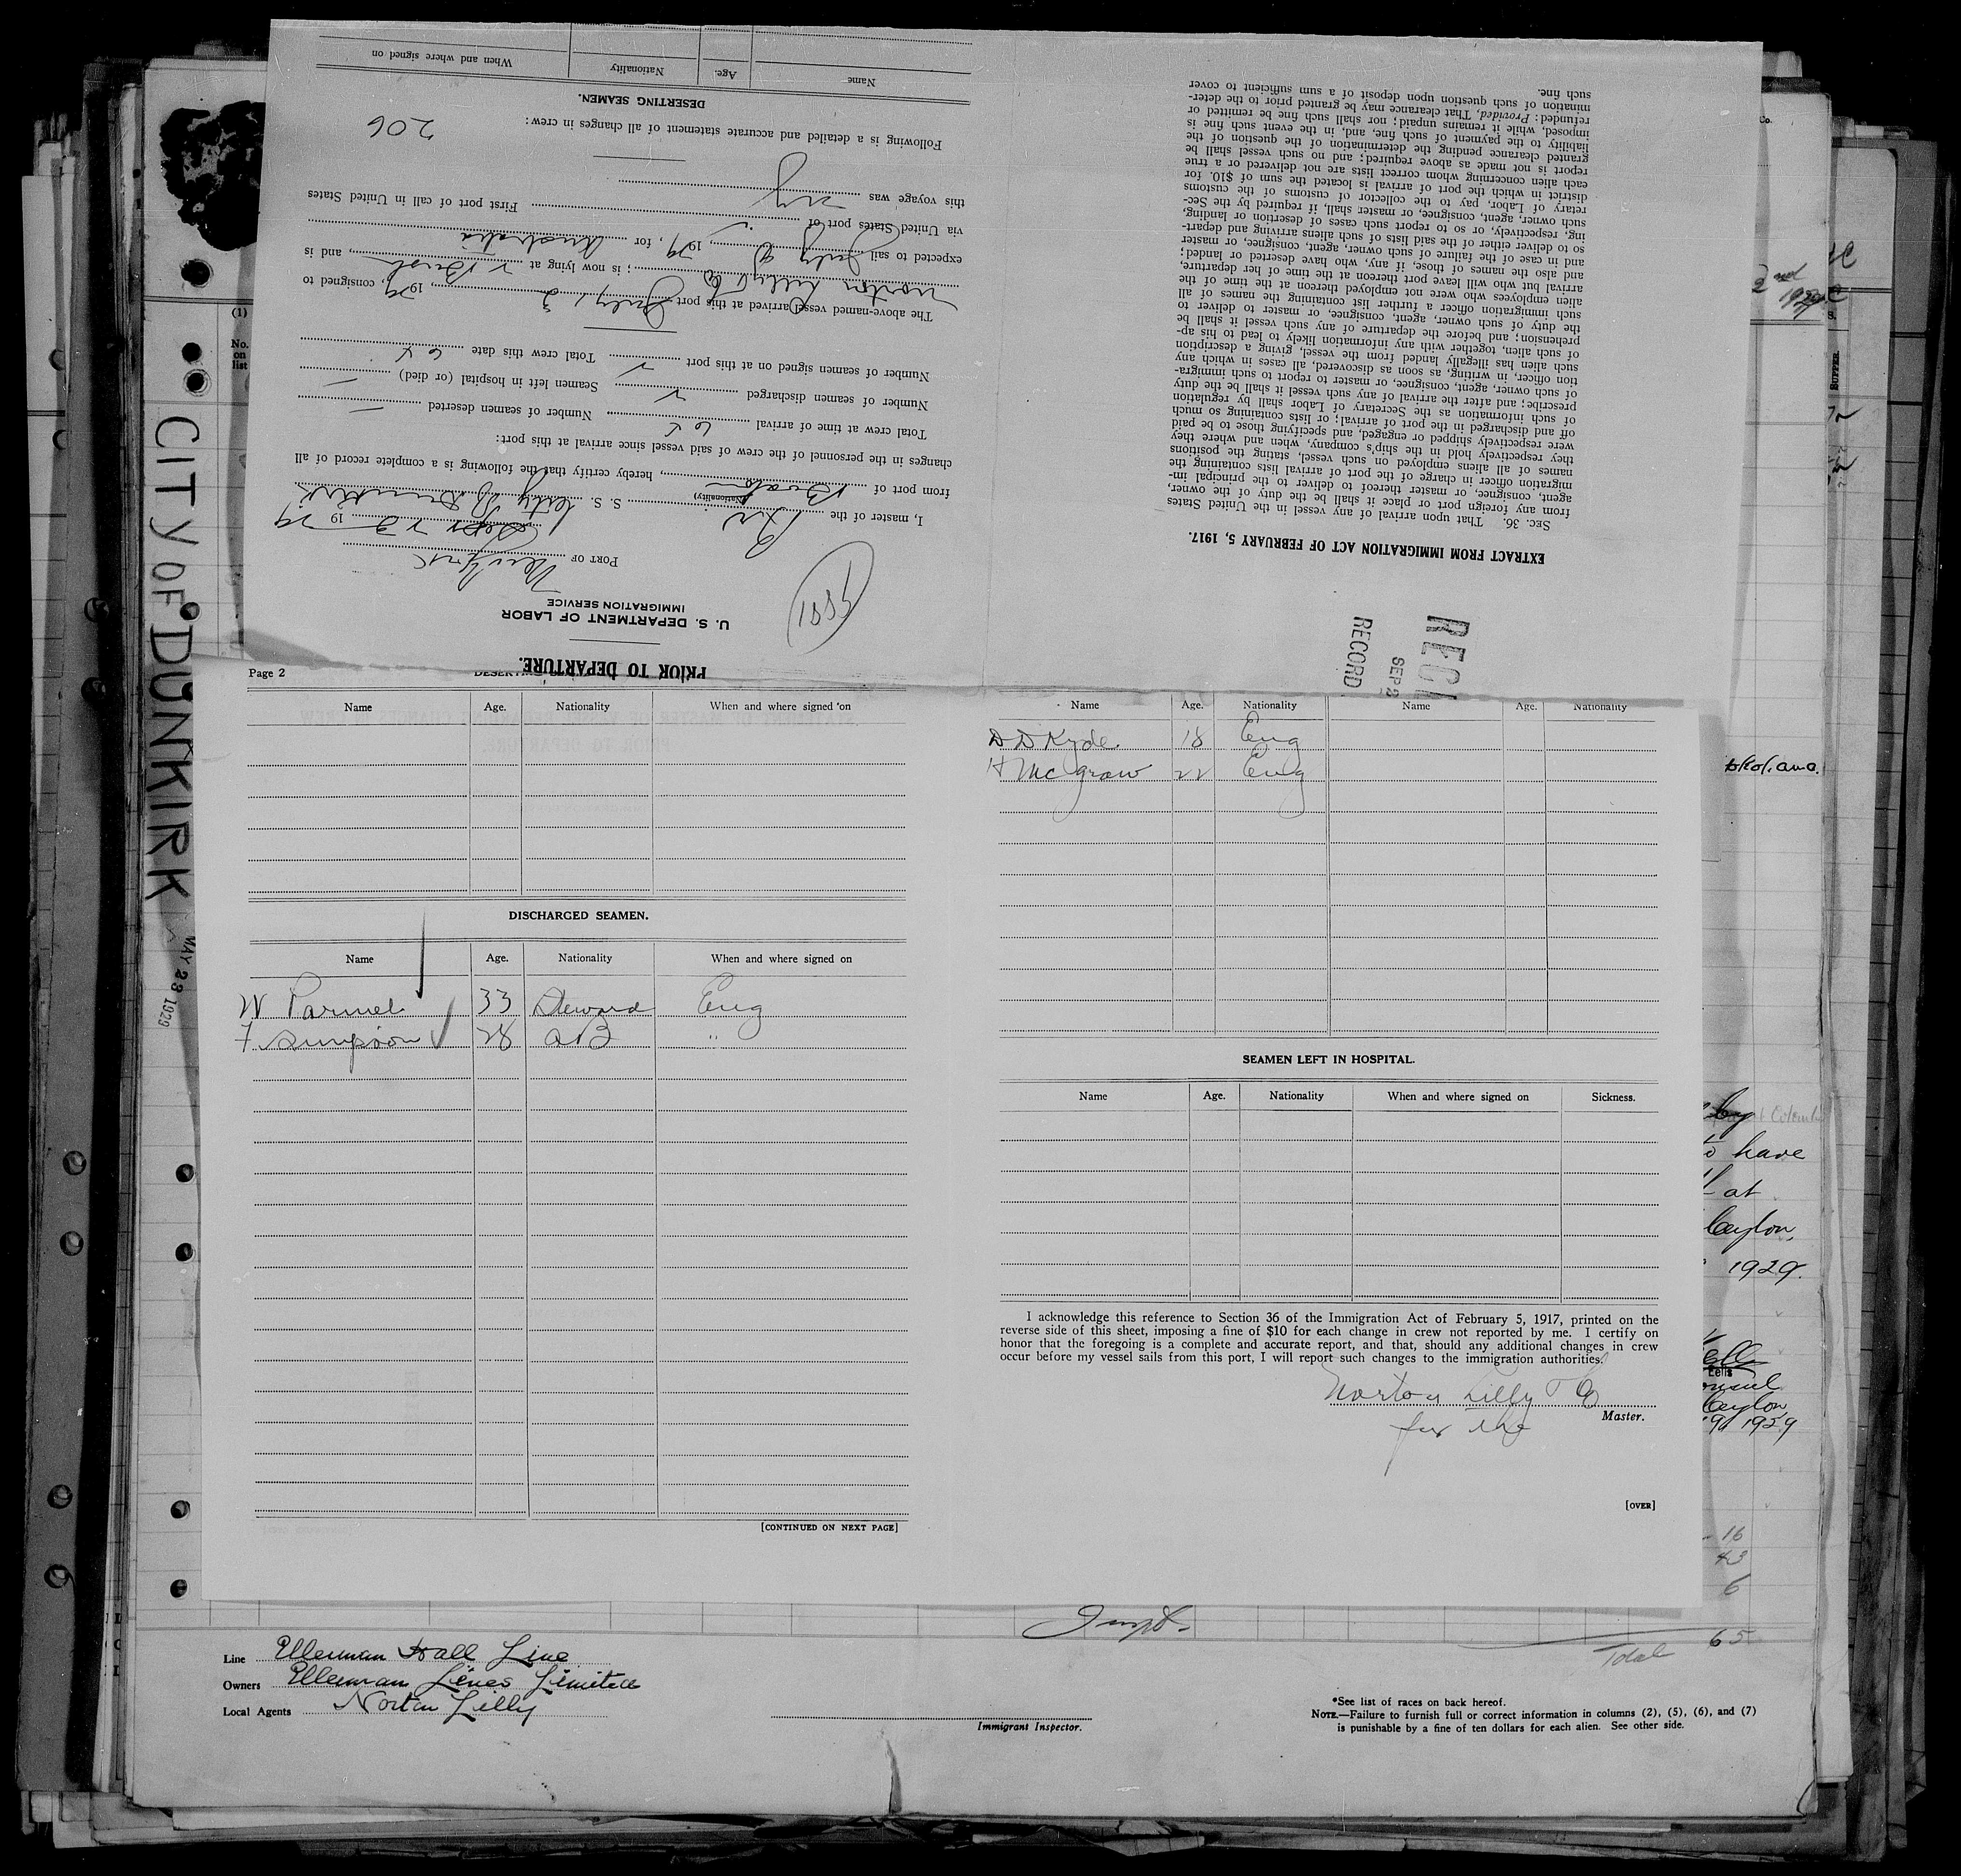 PRIOR TO DEPARTURE.
U. S. DEPARTMENT OF LABOR
IMMIGRATION SERVICE
PORT OF New York
19 29
I, master of the S. S. City of Dunkirk
(Nationality)
from port of Boston, hereby certify that the following is a complete record of all
changes in the personnel of the crew of said vessel since arrival at this port:
Total crew at time of arrival 65 Number of seamen deserted —
Number of seamen discharged 2 Seamen left in hospital (or died) —
Number of seamen signed on at this port 2 Total crew this date 65
The above-named vessel arrived at this port July 29, consigned to
Norton Lilly Co; is now lying at, and is
expected to sail July 1929, for Australia
via United States port of
First port of call in United States
this voyage was NY
Following is a detailed and accurate statement of all changes in crew:
206
DESERTING SEAMEN.
Name Age. Nationality When and where signed on
RECORD
SEP 2
EXTRACT FROM IMMIGRATION ACT OF FEBRUARY 5, 1917.
SEC. 36. That upon arrival of any vessel in the United States
from any foreign port or place it shall be the duty of the owner,
agent, consignee, or master thereof to deliver to the principal im-
migration officer in charge of the port of arrival lists containing the
names of all aliens employed on such vessel, stating the positions
they respectively hold in the ship's company, when and where they
were respectively shipped or engaged, and specifying those to be paid
off and discharged in the port of arrival; or lists containing so much
of such information as the Secretary of Labor shall by regulation
prescribe; and after the arrival of any such vessel it shall be the duty
of such owner, agent, consignee, or master to report to such immigra-
tion officer, in writing, as soon as discovered, all cases in which any
such alien has illegally landed from the vessel, giving a description
of such alien, together with any information likely to lead to his ap-
prehension; and before the departure of any such vessel it shall be
the duty of such owner, agent, consignee, or master to deliver to
such immigration officer a further list containing the names of all
alien employees who were not employed thereon at the time of the
arrival but who will leave port thereon at the time of her departure,
and also the names of those, if any, who have deserted or landed;
and in case of the failure of such owner, agent, consignee, or master
so to deliver either of the said lists of such aliens arriving and depart-
ing, respectively, or so to report such cases of desertion or landing,
such owner, agent, consignee, or master shall, if required by the Sec-
retary of Labor, pay to the collector of customs of the customs
district in which the port of arrival is located the sum of $10. for
each alien concerning whom correct lists are not delivered or a true
report is not made as above required; and no such vessel shall be
granted clearance pending the determination of the question of the
liability to the payment of such fine, and, in the event such fine is
imposed, while it remains unpaid; nor shall such fine be remitted or
refunded: Provided, That clearance may be granted prior to the deter-
mination of such question upon deposit of a sum sufficient to cover
such fine.
(1)
No. on list
CITY OF DUNKIRK
MAY 23 1929
Page 2
Name Age. Nationality When and where signed on
DISCHARGED SEAMEN.
Name Age. Nationality When and where signed on
W Parmel 33 Steward Eng
F Simpson 28 AB "
[CONTINUED ON NEXT PAGE]
Name Age. Nationality Name Age. Nationality
D D Kyde 18 Eng
H McGraw 22 Eng
SEAMEN LEFT IN HOSPITAL.
Name Age. Nationality When and where signed on Sickness.
I acknowledge this reference to Section 36 of the Immigration Act of February 5, 1917, printed on the
reverse side of this sheet, imposing a fine of $10 for each change in crew not reported by me. I certify on
honor that the foregoing is a complete and accurate report, and that, should any additional changes in crew
occur before my vessel sails from this port, I will report such changes to the immigration authorities.
Norton Lilly Co
Master.
for the
[OVER]
2nd
SUPPER
to have
at
Ceylon,
1929.
Ceylon
1929
16
43
6
Total 65
Line Ellerman Hall Line
Owners Ellerman Lines Limited
Local Agents Norton Lilly
Immigrant Inspector.
*See list of races on back hereof.
NOTE.—Failure to furnish full or correct information in columns (2), (5), (6), and (7)
is punishable by a fine of ten dollars for each alien. See other side.